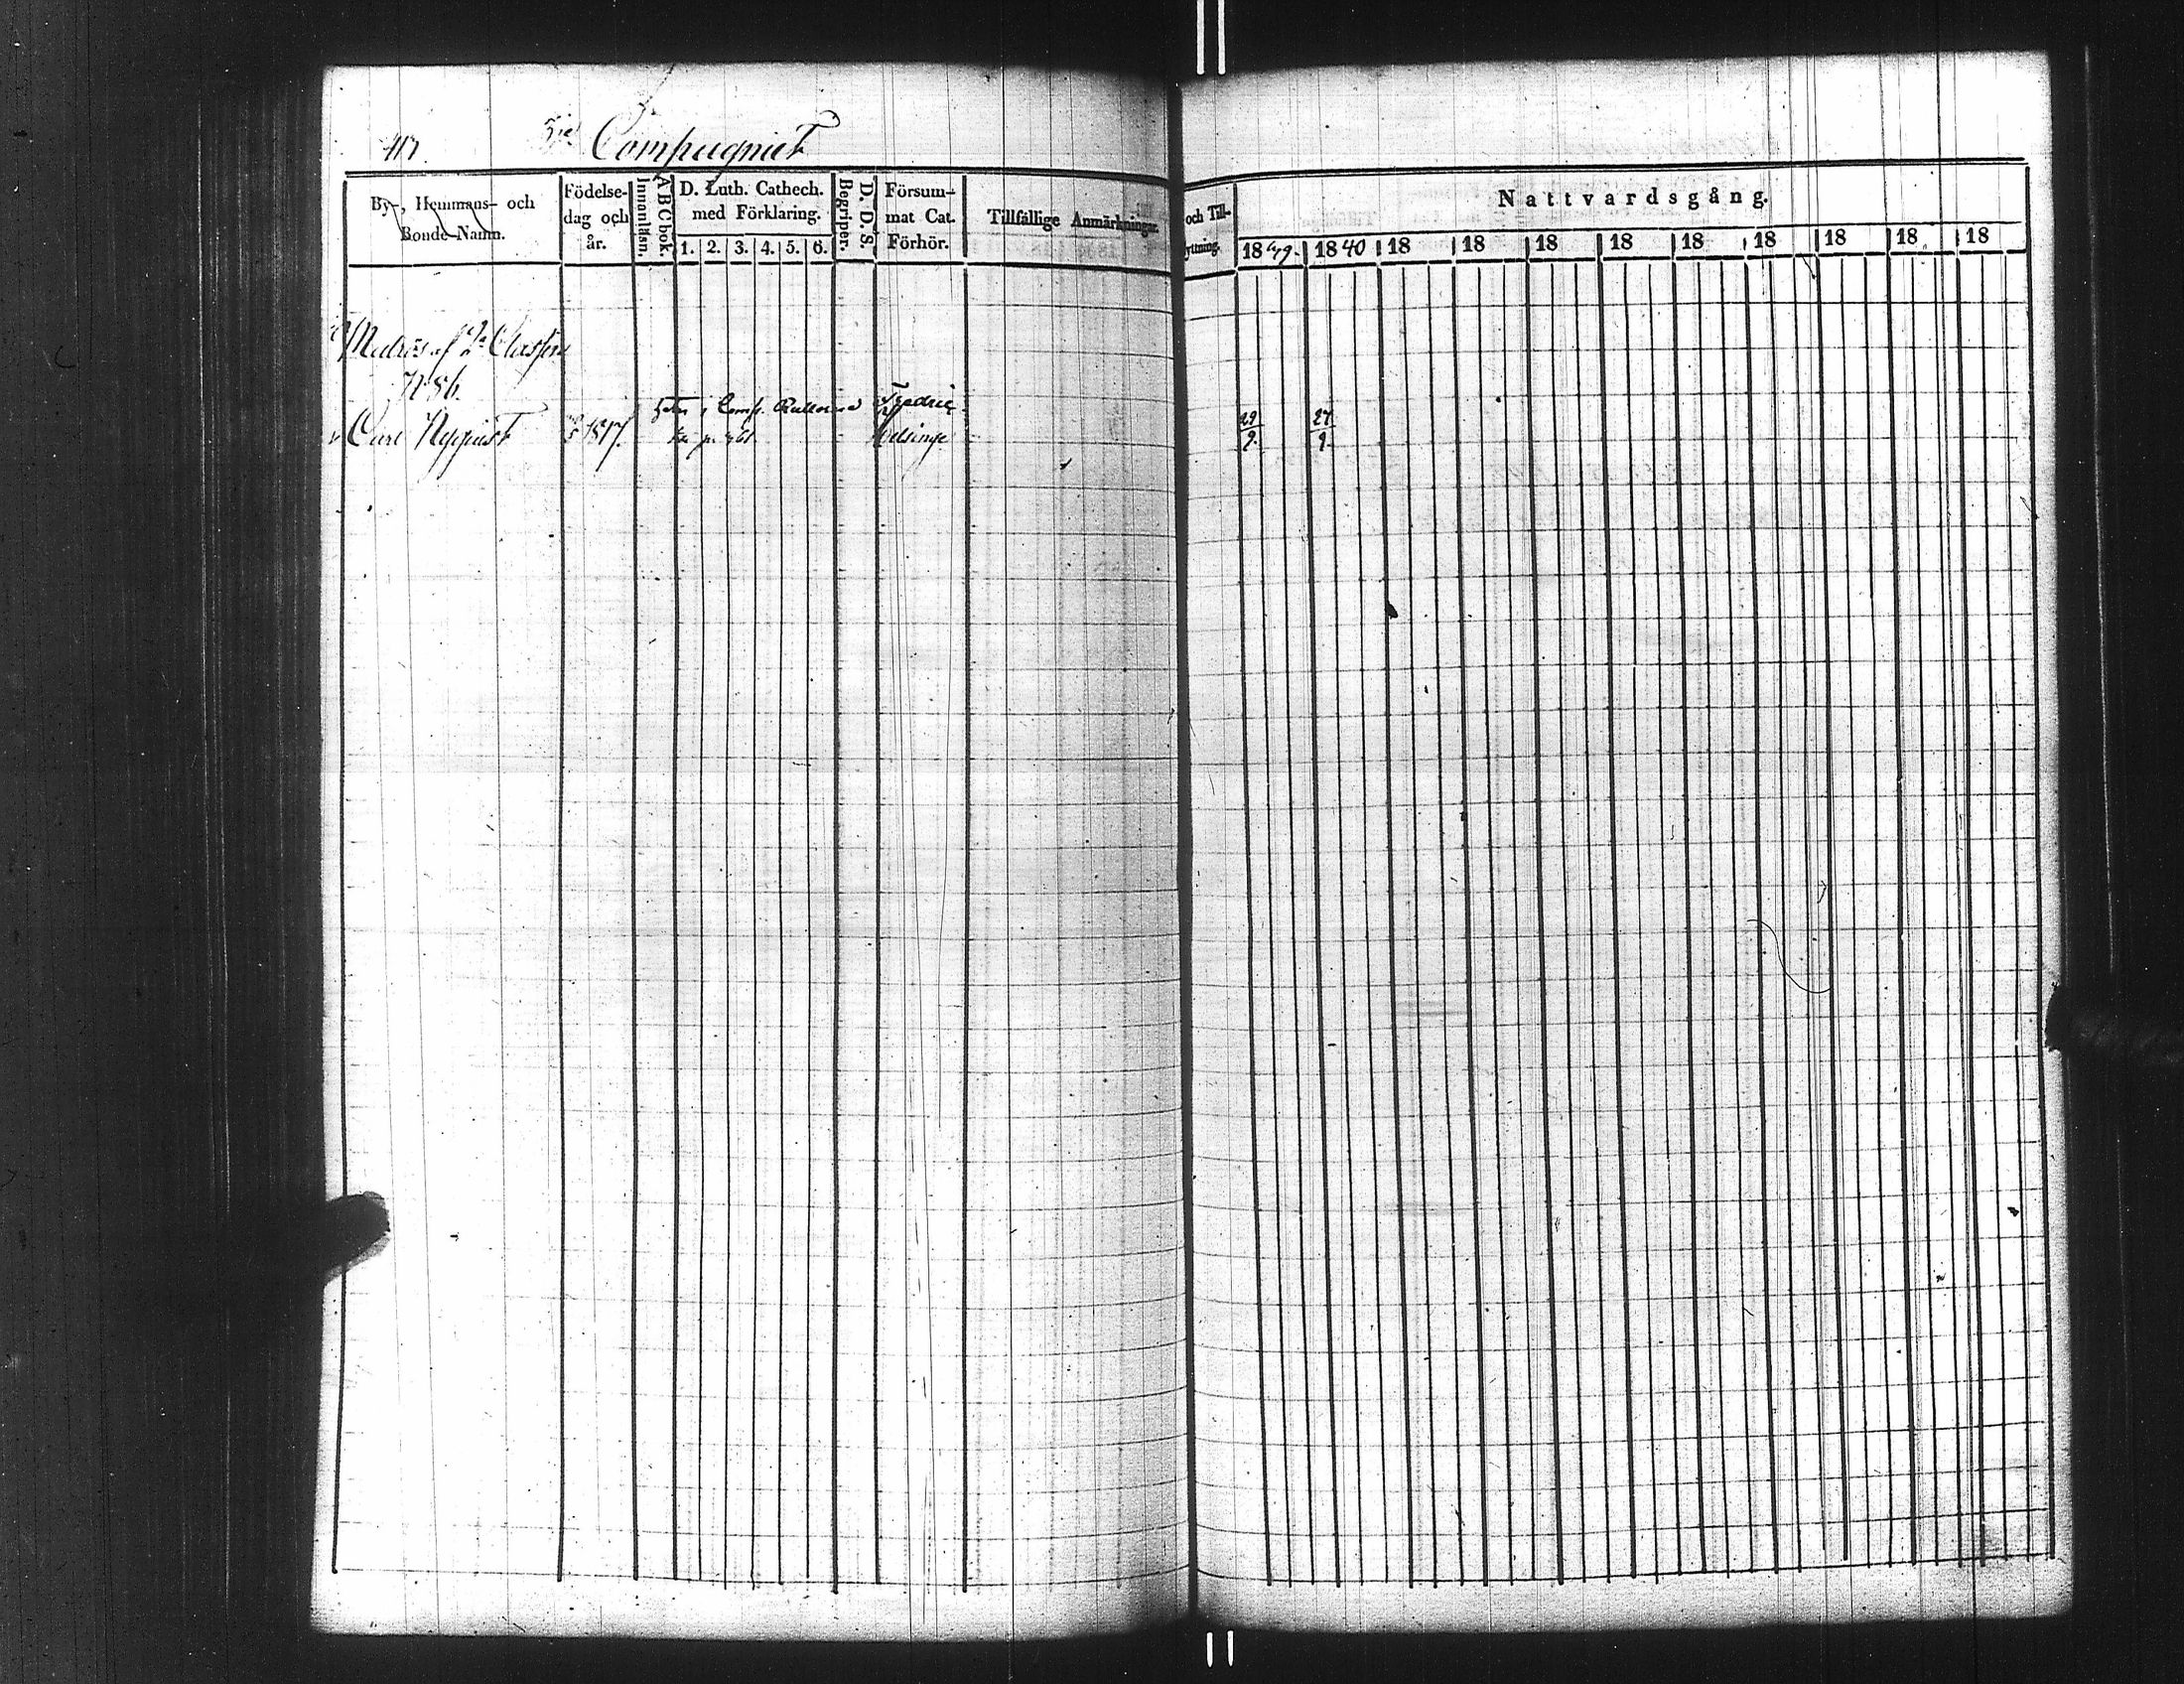 417. Compagniet
By-, Hemmans- och Bonde-Namn.
Födelse-dag och år.
ABC bok. Innanläsn.
D. Luth. Cathech. med Förklaring.
1. 2. 3. 4. 5. 6.
D. D. S. Begriper.
Försum-mat Cat. Förhör.
Tillfällige Anmärkningar
och Till-
yttning.
Nattvardsgång.
18 39. 1840 18 18 18 18 18 18 18 18 18
af 2a Classen
N 86.
i Comp. Rullorna Fredric
Carl Nyquist 1817. 29/9. 27/9.
Helsinge